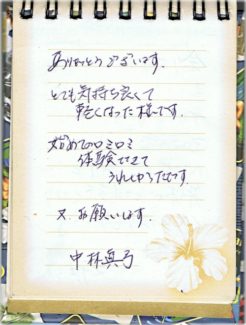 ありがとうございます。
とても気持ち良くて
軽くなった様です。
始めてのロミロミ
体験させて
うれしかったです。
又、お願いします。
中林真弓